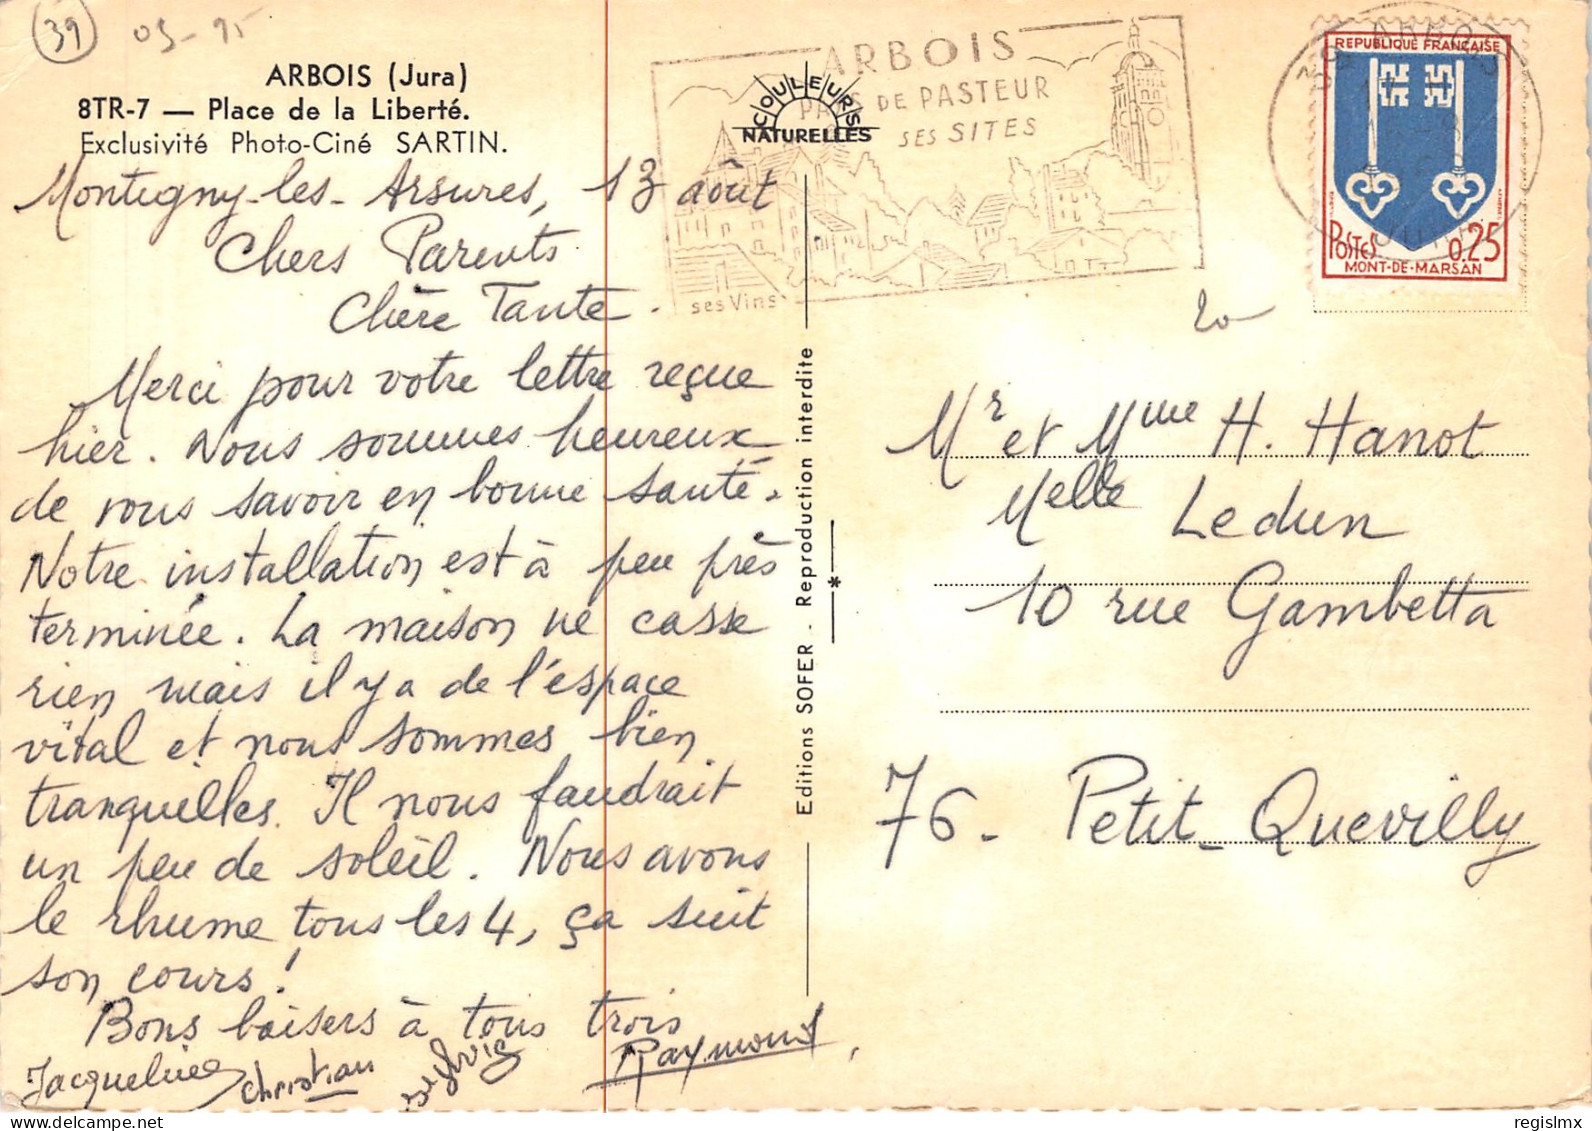 39
ARBOIS (Jura)
8TR-7 — Place de la Liberté.
Exclusivité Photo-Ciné SARTIN.
Montigny-les-Arsures, 13 août
Chers Parents
Chère Tante.
Merci pour votre lettre reçue
hier. Nous sommes heureux
de vous savoir en bonne santé.
Notre installation est à peu près
terminée. La maison ne casse
rien mais il y a de l'espace
vital et nous sommes bien
tranquilles. Il nous faudrait
un peu de soleil. Nous avons
le rhume tous les 4, ça suit
son cours !
Bons baisers à tous trois
Jacqueline Christian Sylvie Raymond
COULEURS
NATURELLES
Editions SOFER - Reproduction interdite
ARBOIS
PAYS DE PASTEUR
SES SITES
ses Vins
39 ARBOIS
JURA
REPUBLIQUE FRANÇAISE
POSTES 0.25
MONT-DE-MARSAN
20
Mr et Mme H. Hanot
Melle Ledun
10 rue Gambetta
76 - Petit-Quevilly
regislmx